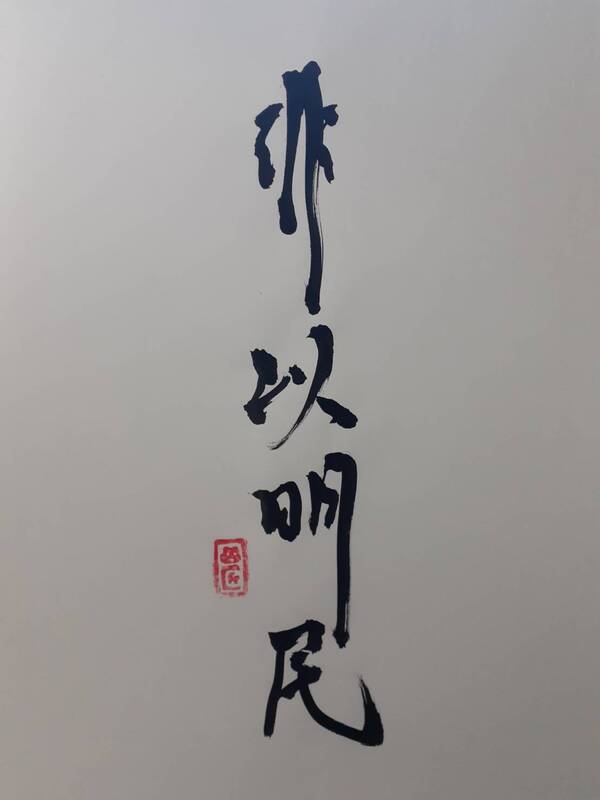 非以明民